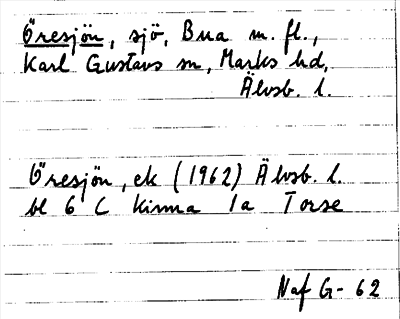 Öresjön, sjö, Bua m. fl.,
Karl Gustavs sn, Marks hd,
Älvsb. l.
Öresjön, ek (1962) Älvsb. l.
bl 6 C Kinna 1a Torse
Naf G- 62